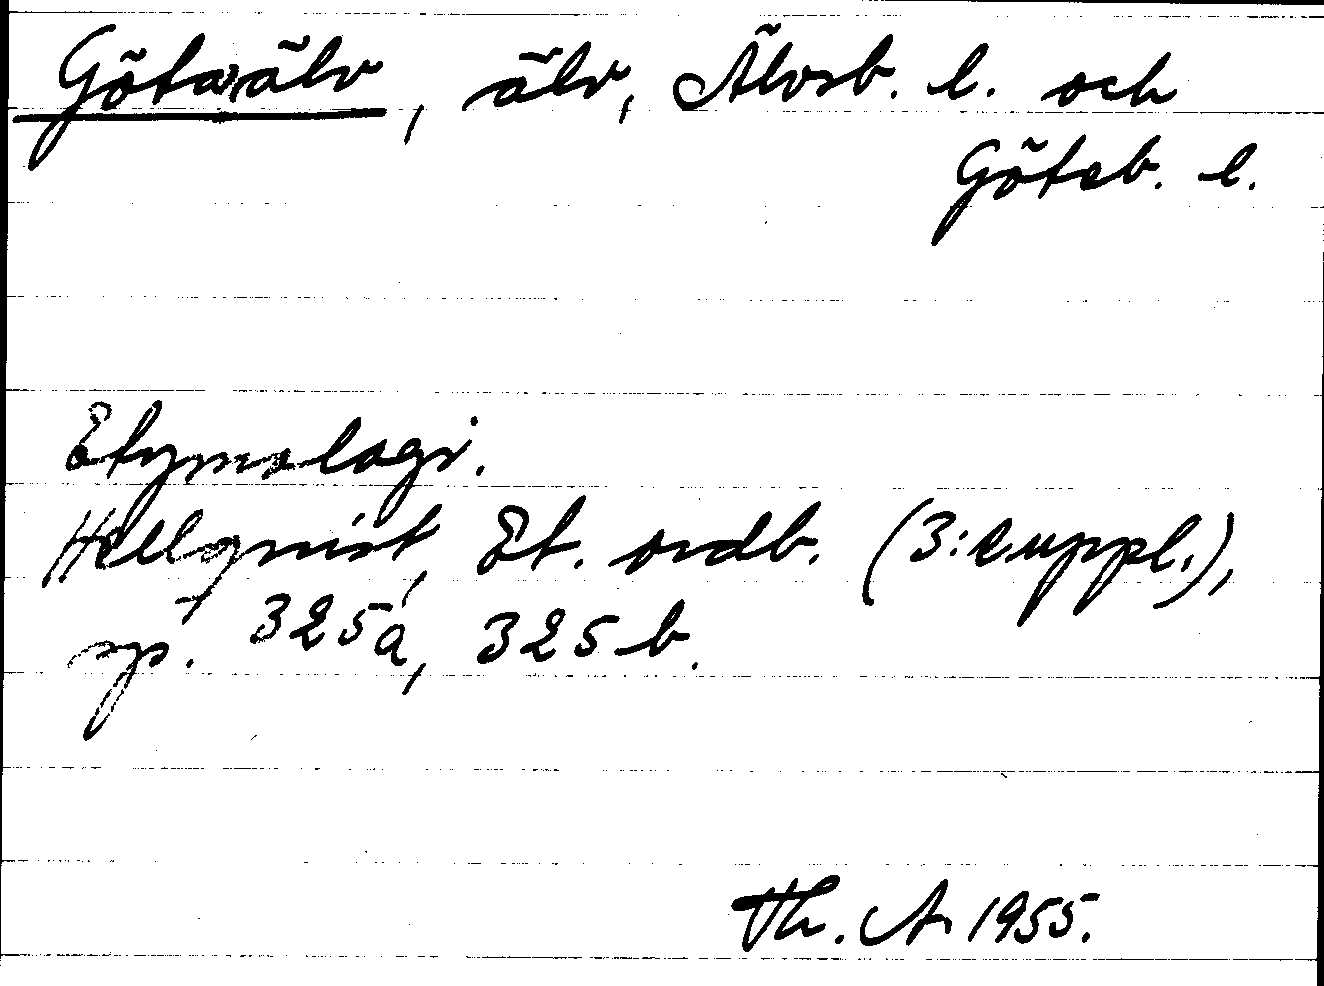 Göta älv, älv, Älvsb. l. och
Göteb. l.
Etymologi.
Hellquist, Et. ordb. (3:e uppl.),
sp. 325a, 325b.
Th. A 1955.